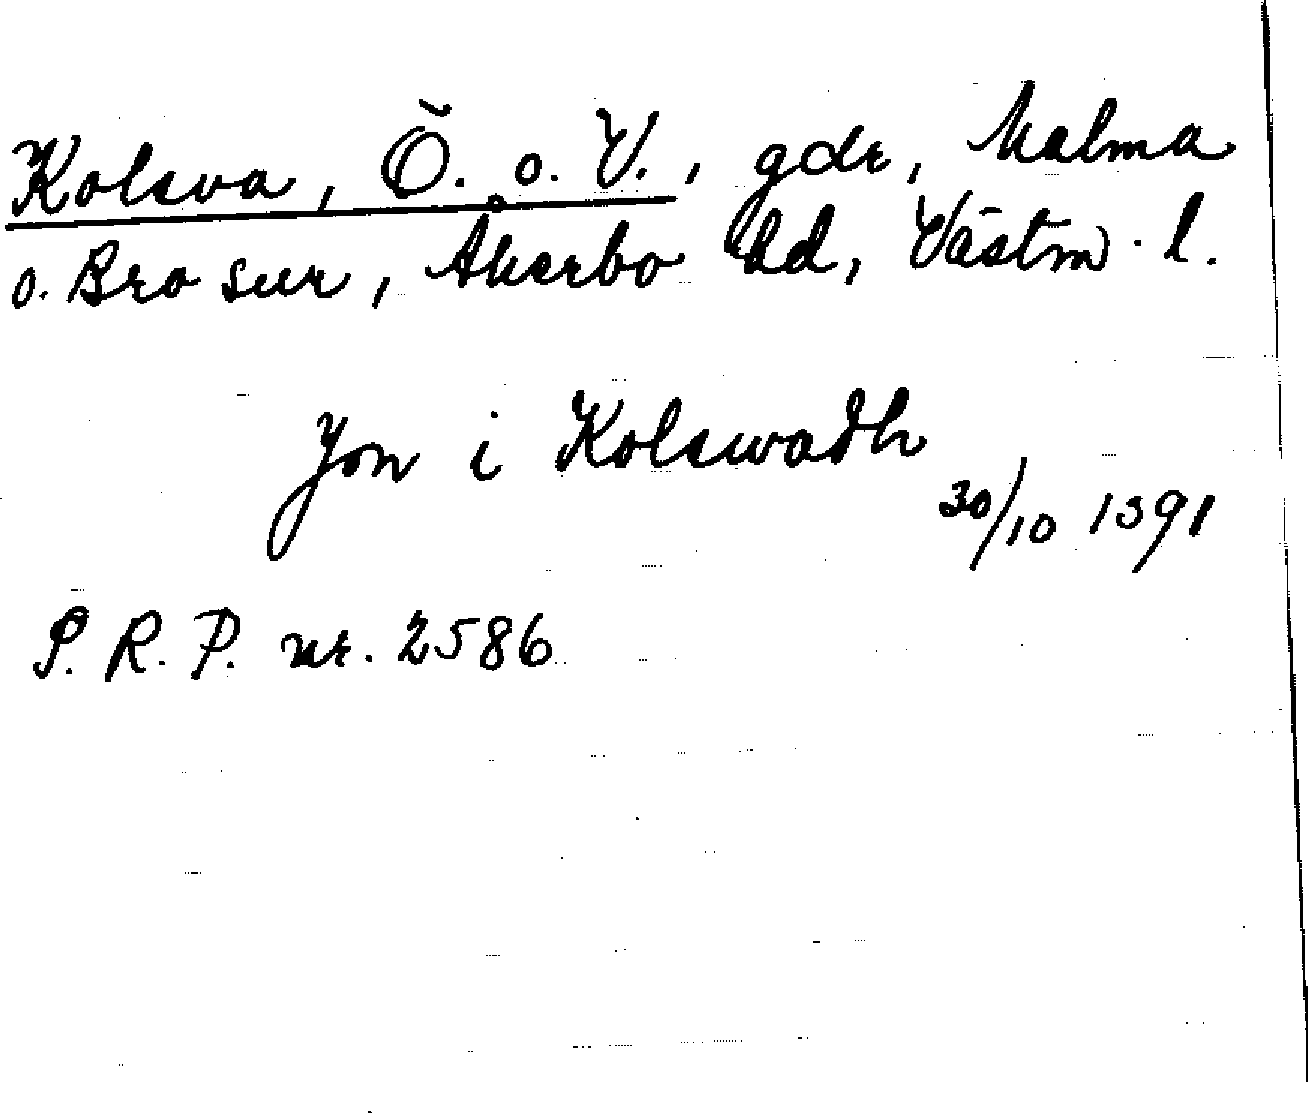 Kolsva, Ö. o. V., gdr, Malma
o. Bro snr, Åkerbo hd, Västm. l.
Jon i Kolswadh
30/10 1391
S. R. P. nr. 2586